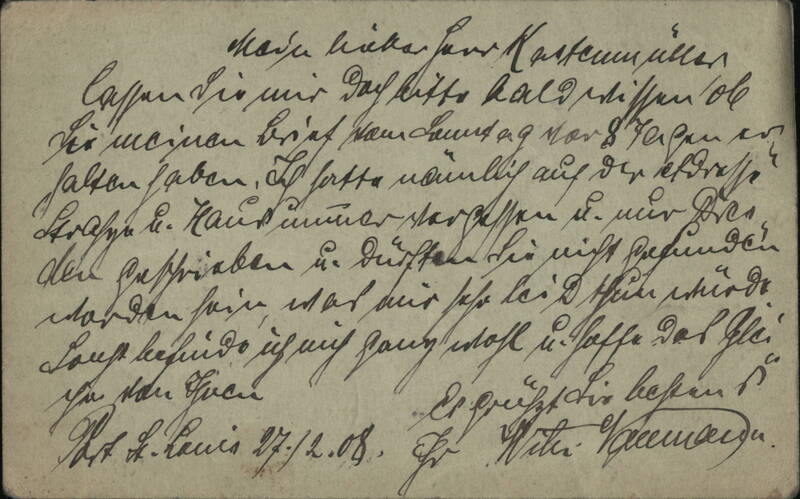 Mein lieber Herr Kestenmüller
lassen Sie mir doch bitte bald wissen ob
Sie meinen Brief vom Sonntag vor 8 Tagen er
halten haben. Ich hatte nämlich auf der Adresse
Straße u. Hausnummer vergessen u. nur Dres
den geschrieben u. dürften Sie nicht gefunden
worden sein, was mir sehr leid thun würde
Sonst befinde ich mich ganz wohl u. hoffe das Glei
che von Ihnen
Es grüßt Sie bestens
Port St. Louis 27./2.08.
Ihr Wilh.